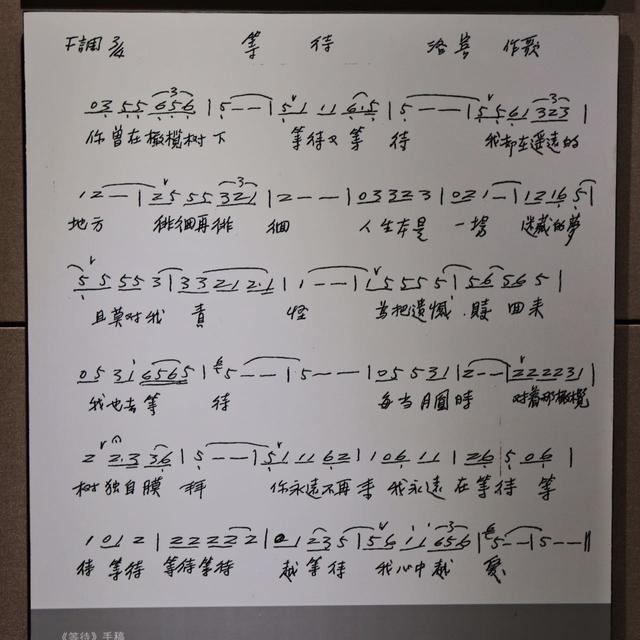 F調 3/4 等 待 洛賓 作歌
0 3 5 5 6 5 6 | 5 – – | 5 1 1 1 6·5 | 5 – – | 5 5 6 1 3 2 3 |
你曾在橄欖树下 等待又等 待 我却在遥遠的
1 2 – | 2 5 5 5 3 2 1 | 2 – – | 0 3 3 2 3 | 0 2 1 – | 1 2 1 6 5 |
地方 徘徊再徘 徊 人生本是 一場 迷藏的夢
5 5 5 5 3 | 3 3 2 1 2·1 | 1 – – | 1 5 5 5 5 | 5 6 5 6 5 |
且莫对我 責 怪 為把遺憾 贖 回来
0 5 3 1 6 5 6 5 | 5 – – | 5 – – | 0 5 5 3 1 | 2 – – | 2 2 2 2 3 1 |
我也去等 待 每当月圓時 对着那橄欖
2 2·3 3 6 | 5 – – | 5 1 1 6 2 | 1 0 6 1 1 | 2 6 5 0 6 |
树 独自膜 拜 你永远不再来 我永远 在等待 等
1 0 1 2 | 2 2 2 2 2 | 0 1 2 3 5 | 5 6 1 1 6 5 6 | 5 – – | 5 – – ||
待 等待 等待等待 越等待 我心中越 愛
《等待》手稿